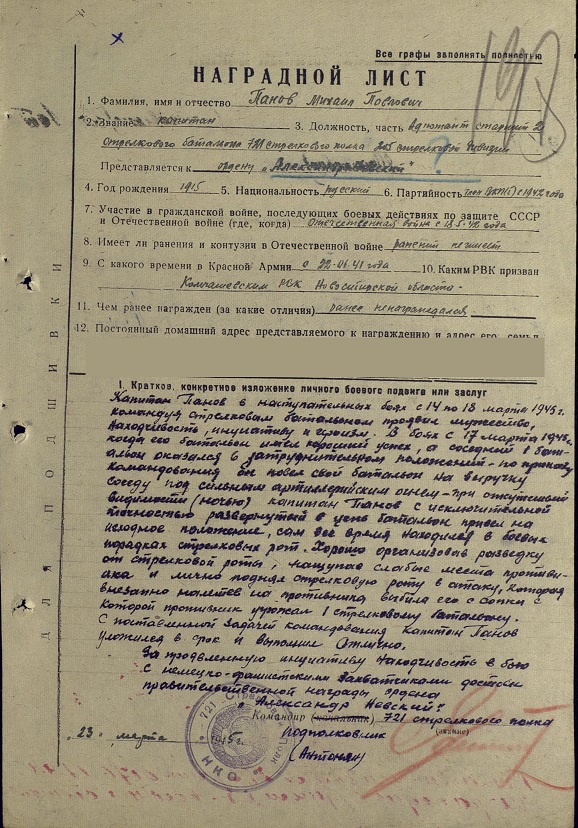 Все графы заполнять полностью
НАГРАДНОЙ ЛИСТ
1. Фамилия, имя и отчество Панов Михаил Павлович
2. Звание капитан 3. Должность, часть Адъютант старший 2
стрелкового батальона 721 стрелкового полка 205 стрелковой дивизии
Представляется к ордену „Александр Невский“ ?
4. Год рождения 1915 5. Национальность русский 6. Партийность член ВКП(б) с 1942 года
7. Участие в гражданской войне, последующих боевых действиях по защите СССР
и Отечественной войне (где, когда) Отечественная война с 18.5.42 года
8. Имеет ли ранения и контузии в Отечественной войне ранений не имеет
9. С какого времени в Красной Армии с 22.06.41 года 10. Каким РВК призван
РВК Новосибирской области
11. Чем ранее награжден (за какие отличия) ранее ненаграждался
12. Постоянный домашний адрес представляемого к награждению и адрес его семьи
I. Краткое, конкретное изложение личного боевого подвига или заслуг
Капитан Панов в наступательных боях с 14 по 18 марта 1945 г.
командуя стрелковым батальоном проявил мужество,
находчивость, инициативу и героизм. В боях с 17 марта 1945 г.
когда его батальон имел хороший успех, а соседний 1 бата-
льон оказался в затруднительном положений - по приказу
командования он повел свой батальон на выручку
соседу под сильным артиллерийским огнем - при отсутствий
видимости (ночью) капитан Панов с исключительной
точностью развернутый в цепь батальон привел на
исходное положение, сам все время находился в боевых
порядках стрелковых рот. Хорошо организовав разведку
от стрелковой роты, нащупав слабые места противни-
ка и лично поднял стрелковую роту в атаку, которая
внезапно налетев на противника выбила его с сопки с
которой противник угрожал 1 стрелковому батальону.
С поставленной задачей командования капитан Панов
уложился в срок и выполнил отлично.
За проявленную инициативу находчивость в бою
с немецко-фашистскими захватчиками достоин
правительственной награды ордена
„Александр Невский“.
Командир (начальник) 721 стрелкового полка
подполковник (звание)
„23“ марта 1945 г.
(Антонян)
721
НКО
ДЛЯ ПОДШИВКИ